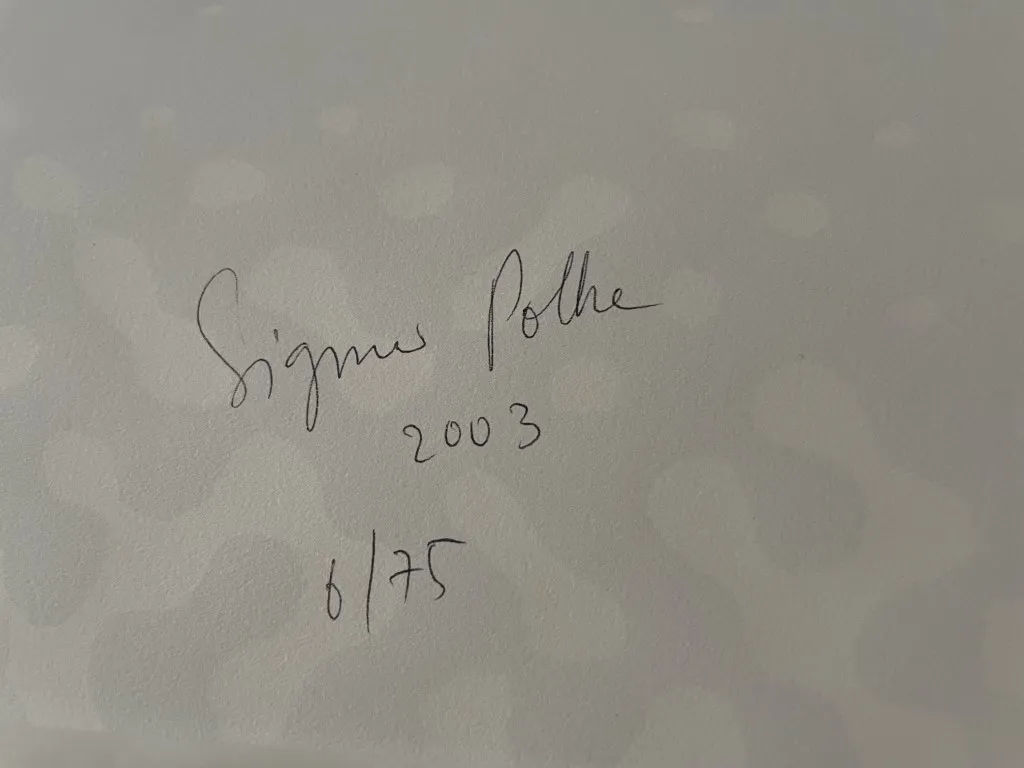 Sigmar Polke
2003
6/75